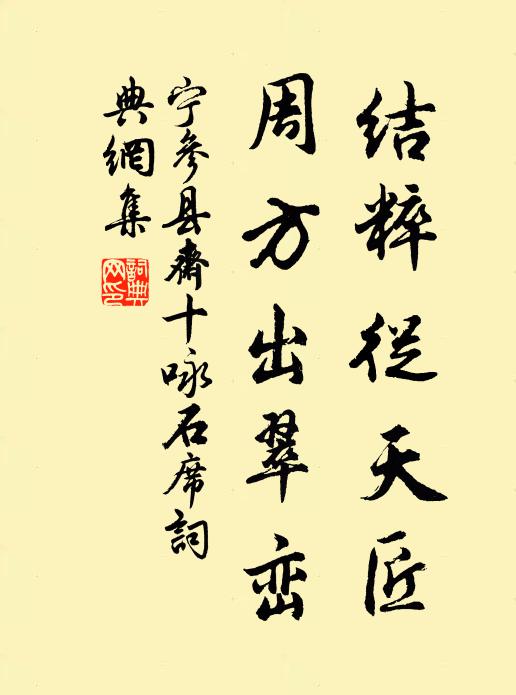 结粹从天匠
周方出翠峦
宁参县斋十咏石席词
典網集
詞典
网印